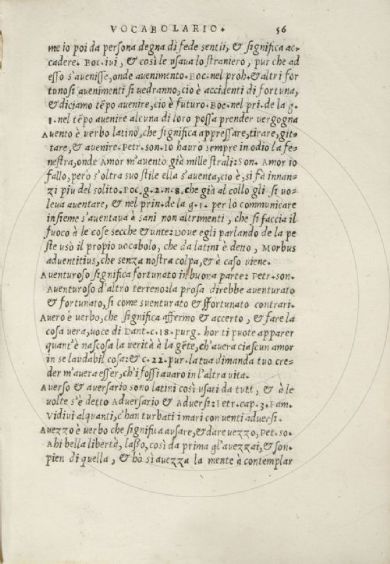 VOCABOLARIO. 56
me io poi da persona degna di fede sentii, & significa ac-
cadere. Boc. ivi, & così le usava lo straniero, pur che ad
esso s'avenisse, onde avenimento. Boc. nel proh. & altri for
tunosi avenimenti si vedranno, cio è accidenti di fortuna,
& diciamo tēpo avenire, cio è futuro. Boc. nel pri. de la g.
1. nel tēpo avenire alcuna di loro possa prender vergogna
Avento è verbo latino, che significa appressare, tirare, git-
tare, & avenire. Petr. son. 10 hauro sempre in odio la fe-
nestra, onde Amor m'avento già mille strali: son. Amor io
fallo, però s'oltra suo stile ella s'aventa, cio è, si fa innan-
zi piu del solito. Boc. g. 2. n. 8. che già al collo gli si vo-
leva aventare, & nel prin. de la g. 1. per lo communicare
insieme s'aventava è sani non altrimenti, che si faccia il
fuoco è le cose secche & unte: Dove egli parlando de la pe
ste usò il propio vocabolo, che da latini è detto, Morbus
adventitius, che senza nostra colpa, & è caso viene.
Aventuroso significa fortunato in buona parte: Petr. son.
Aventuroso d'altro terreno: la prosa direbbe aventurato
& fortunato, si come sventurato & sfortunato contrari.
Avero è verbo, che significa affermo & accerto, & fare la
cosa vera, voce di Dant. c. 18. purg. hor ti puote apparer
quant'è nascosa la verità è la gēte, ch'avera ciascun amor
in se laudabil cosa: & c. 22. pur. la tua dimanda tuo cre-
der m'avera esser, ch'i fossi avaro in l'altra vita.
Averso & aversario sono latini così usari da tutt, & è le
volte s'è detto Adversario & Adversi: Petr. cap. 3. Fam.
Vidivi alquanti, c'han turbati i mari con venti adversi.
Avezzo è verbo che significa ausare, & dare vezzo, Pet. so.
Ahi bella libertà, lasso, così da prima gl'avezzai, & son.
pien di quella, & hò sì avezza la mente à contemplar